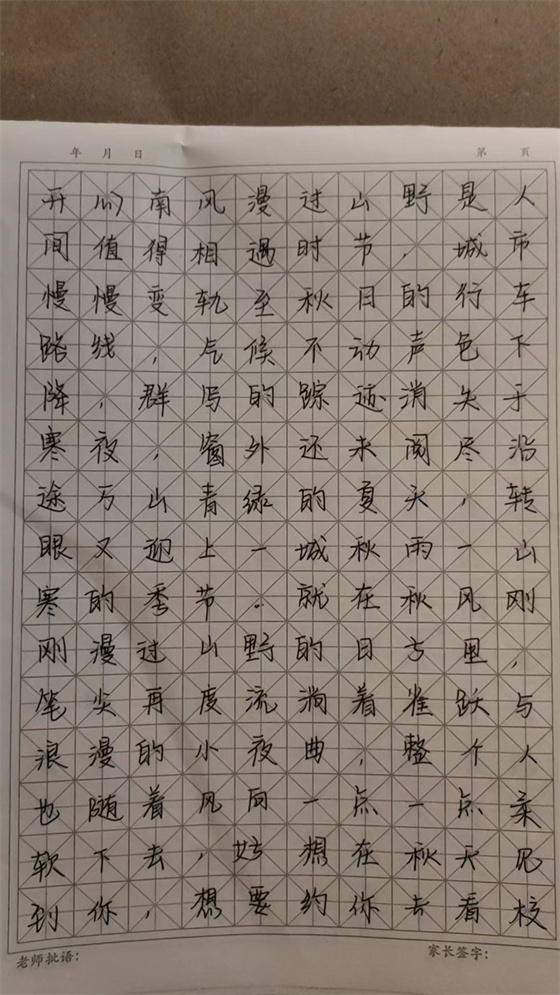 年 月 日 第 页
开心南风漫过山野是人
间值得相遇时节，城市
慢慢变轨至秋日的行车
路线，气候不动声色下
降，群鸟的踪迹消失于
寒夜，窗外还未阅尽沿
途万山青绿的夏天，转
眼又迎上一城秋雨一山
寒的季节。就在秋风刚
刚漫过山野的日子里，
笔尖再度流淌着雀跃与
浪漫的小夜曲，整个人
也随着风向一点一点柔
软下去，好想在秋天见
到你，想要约你去看校
老师批语： 家长签字：